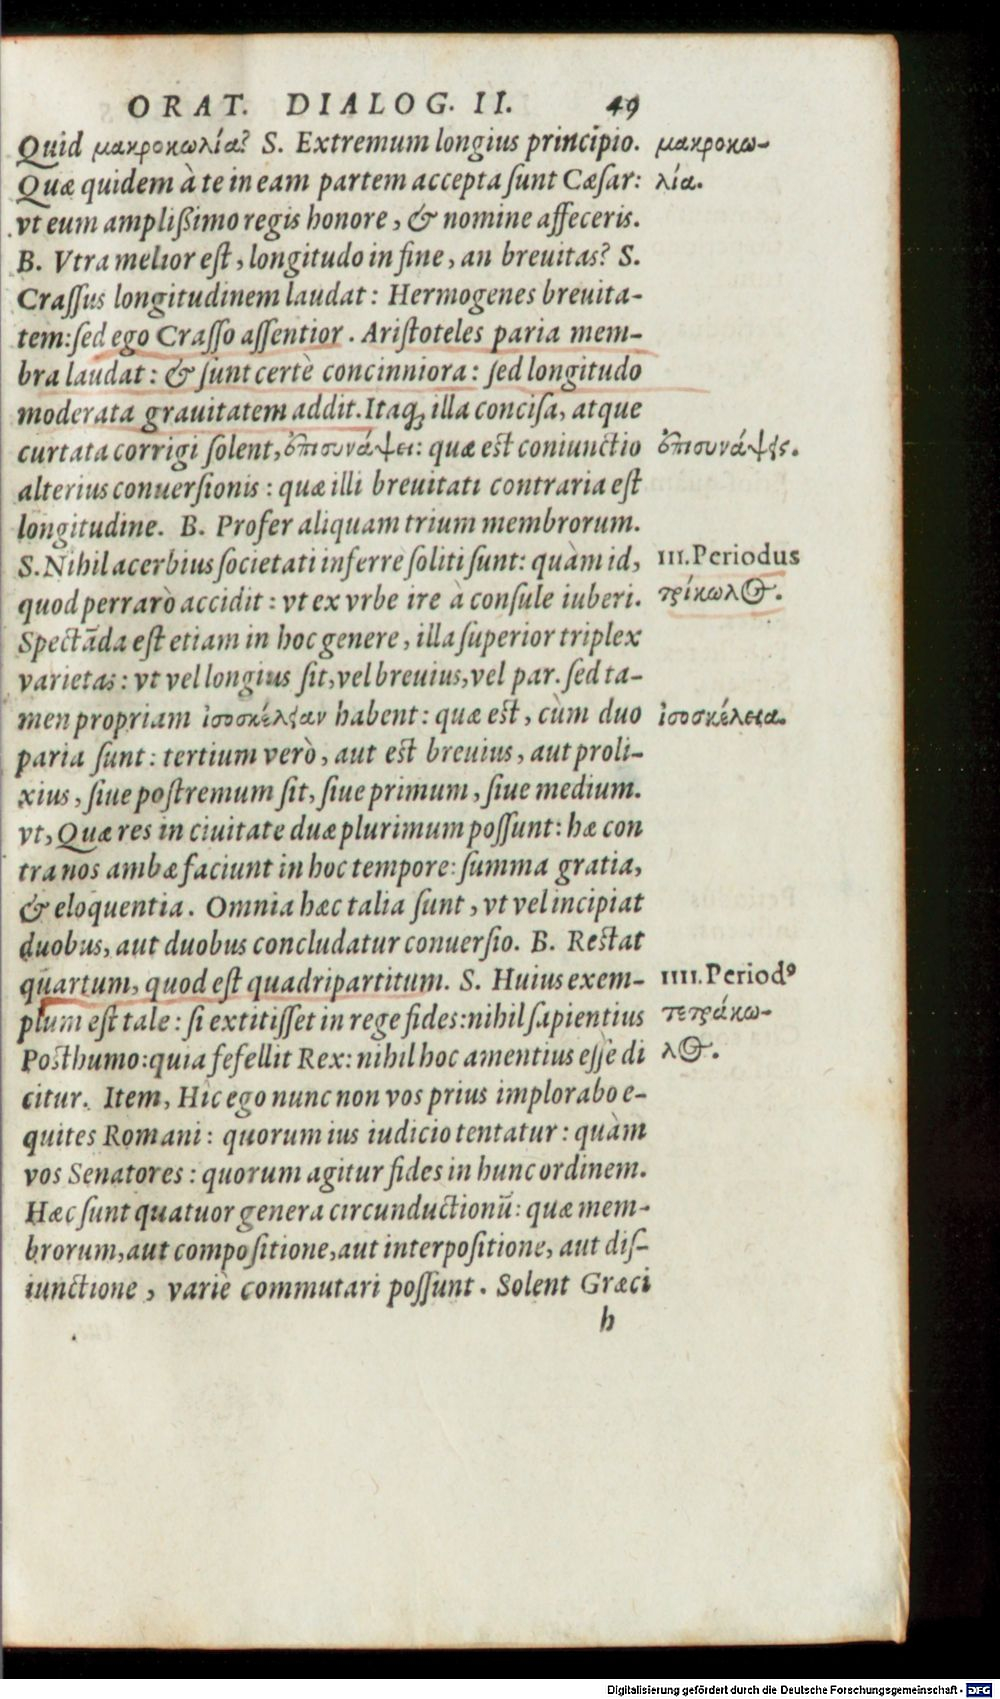 ORAT. DIALOG. II. 49
Quid μακροκωλία? S. Extremum longius principio. μακροκω-
Quæ quidem à te in eam partem accepta sunt Cæsar: λία.
vt eum amplißimo regis honore, & nomine affeceris.
B. Vtra melior est, longitudo in fine, an breuitas? S.
Crassus longitudinem laudat: Hermogenes breuita-
tem: sed ego Crasso assentior. Aristoteles paria mem-
bra laudat: & sunt certè concinniora: sed longitudo
moderata grauitatem addit. Itaq; illa concisa, atque
curtata corrigi solent, ἐπισυνάψει: quæ est coniunctio ἐπισυνάψις.
alterius conuersionis: quæ illi breuitati contraria est
longitudine. B. Profer aliquam trium membrorum.
S. Nihil acerbius societati inferre soliti sunt: quàm id, III. Periodus
quod perrarò accidit: vt ex vrbe ire à consule iuberi. τρίκωλος.
Spectāda est etiam in hoc genere, illa superior triplex
varietas: vt vel longius sit, vel breuius, vel par. sed ta-
men propriam ἰσοσκέλειαν habent: quæ est, cùm duo ἰσοσκέλεια.
paria sunt: tertium verò, aut est breuius, aut proli-
xius, siue postremum sit, siue primum, siue medium.
vt, Quæ res in ciuitate duæ plurimum possunt: hæ con
tra nos ambæ faciunt in hoc tempore: summa gratia,
& eloquentia. Omnia hæc talia sunt, vt vel incipiat
duobus, aut duobus concludatur conuersio. B. Restat
quartum, quod est quadripartitum. S. Huius exem- IIII. Periodꝰ
plum est tale: si extitisset in rege fides: nihil sapientius τετράκω-
Posthumo: quia fefellit Rex: nihil hoc amentius esse di λος.
citur. Item, Hic ego nunc non vos prius implorabo e-
quites Romani: quorum ius iudicio tentatur: quàm
vos Senatores: quorum agitur fides in hunc ordinem.
Hæc sunt quatuor genera circunductionū: quæ mem-
brorum, aut compositione, aut interpositione, aut dis-
iunctione, variè commutari possunt. Solent Græci
h
Digitalisierung gefördert durch die Deutsche Forschungsgemeinschaft - DFG